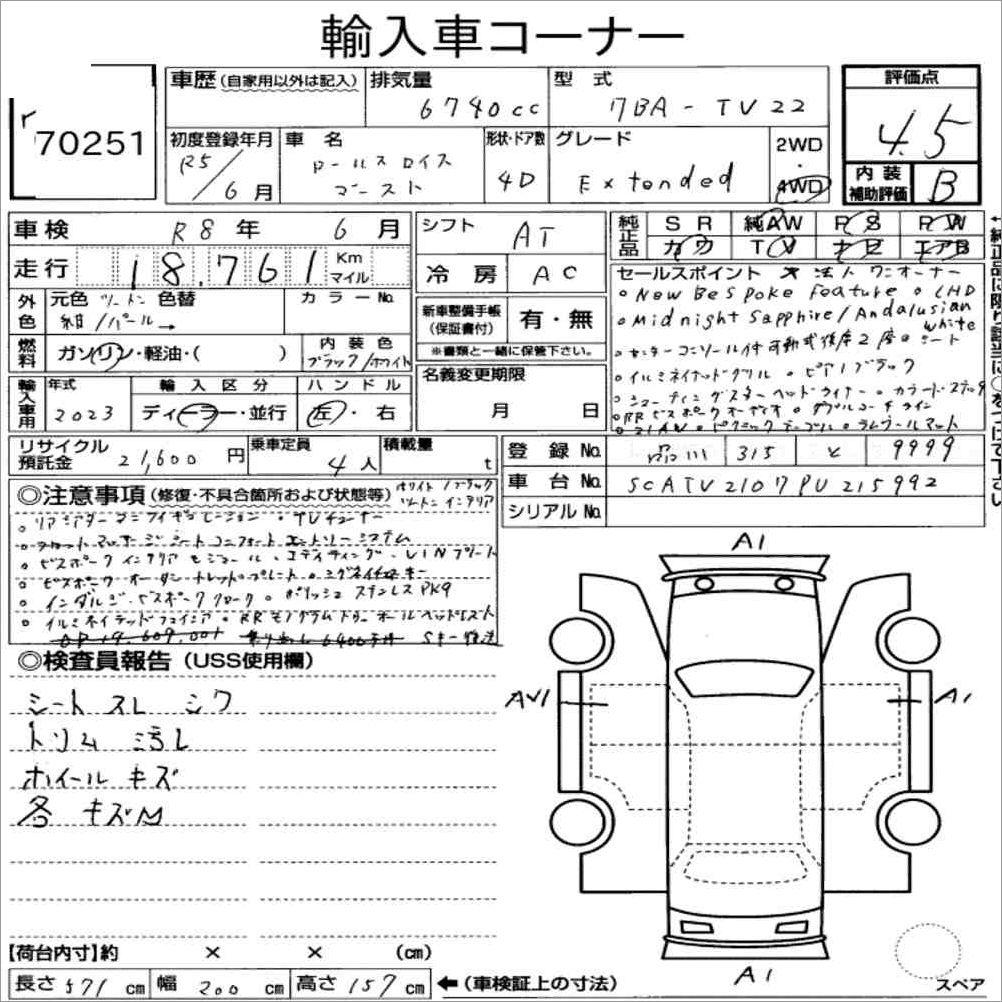 輸入車コーナー
r
70251
車歴(自家用以外は記入)
排気量
6740cc
型式
7BA-TV22
評価点
4.5
内装補助評価
B
初度登録年月
R5/6月
車名
ロールスロイス
ゴースト
形状・ドア数
4D
グレード
Extended
2WD
・
4WD
車検
R8年 6月
走行
18,761
Km
マイル
シフト
AT
冷房
AC
純正品
SR 純AW PS PW
カワ TV ナビ エアB
外色
元色 ツートン 色替
紺/パール→
カラーNo.
燃料
ガソリン・軽油・( )
内装色
ブラック/ホワイト
新車整備手帳
(保証書付)
有・無
※書類と一緒に保管下さい。
名義変更期限
月 日
輸入車用
年式
2023
輸入区分
ディーラー・並行
ハンドル
左・右
セールスポイント ×法人ワンオーナー
・New Bespoke Feature ・LHD
・Midnight Sapphire/Andalusian
White
・センターコンソール付可動式後席2座シート
・イルミネイテッドグリル ・ピアノブラック
・シューティングスターヘッドライナー ・カラードステッチ
・RRビスポークオーディオ ・ダブルコーチライン
・21AW ・ピクニックテーブル ・ラムウールマット
リサイクル預託金
21,600円
乗車定員
4人
積載量
t
登録No.
品川 315 と 9999
車台No.
SCATV2107PU215992
シリアルNo.
◎注意事項(修復・不具合箇所および状態等)
ホワイト/ブラック
ツートンインテリア
・リアシアターコンフィギュレーション ・TVチューナー
・フロントマッサージシート コンフォートエントリーシステム
・ビスポークインテリアモジュール・エディティング・VINプレート
・ビスポークオーダートレッドプレート ・シグネイチャーキー
・インダルジ・ビスポーククローク ・ポリッシュステンレスPKG
・イルミネイテッドフェイシア ・RRモノグラムトゥオールヘッドレスト
OP19,609,001
Sキー後送
◎検査員報告(USS使用欄)
シート スレ シワ
トリム 汚レ
ホイール キズ
各 キズM
A1
AW1
A1
A1
スペア
【荷台内寸】約 × × (cm)
長さ571cm 幅200cm 高さ157cm ←(車検証上の寸法)